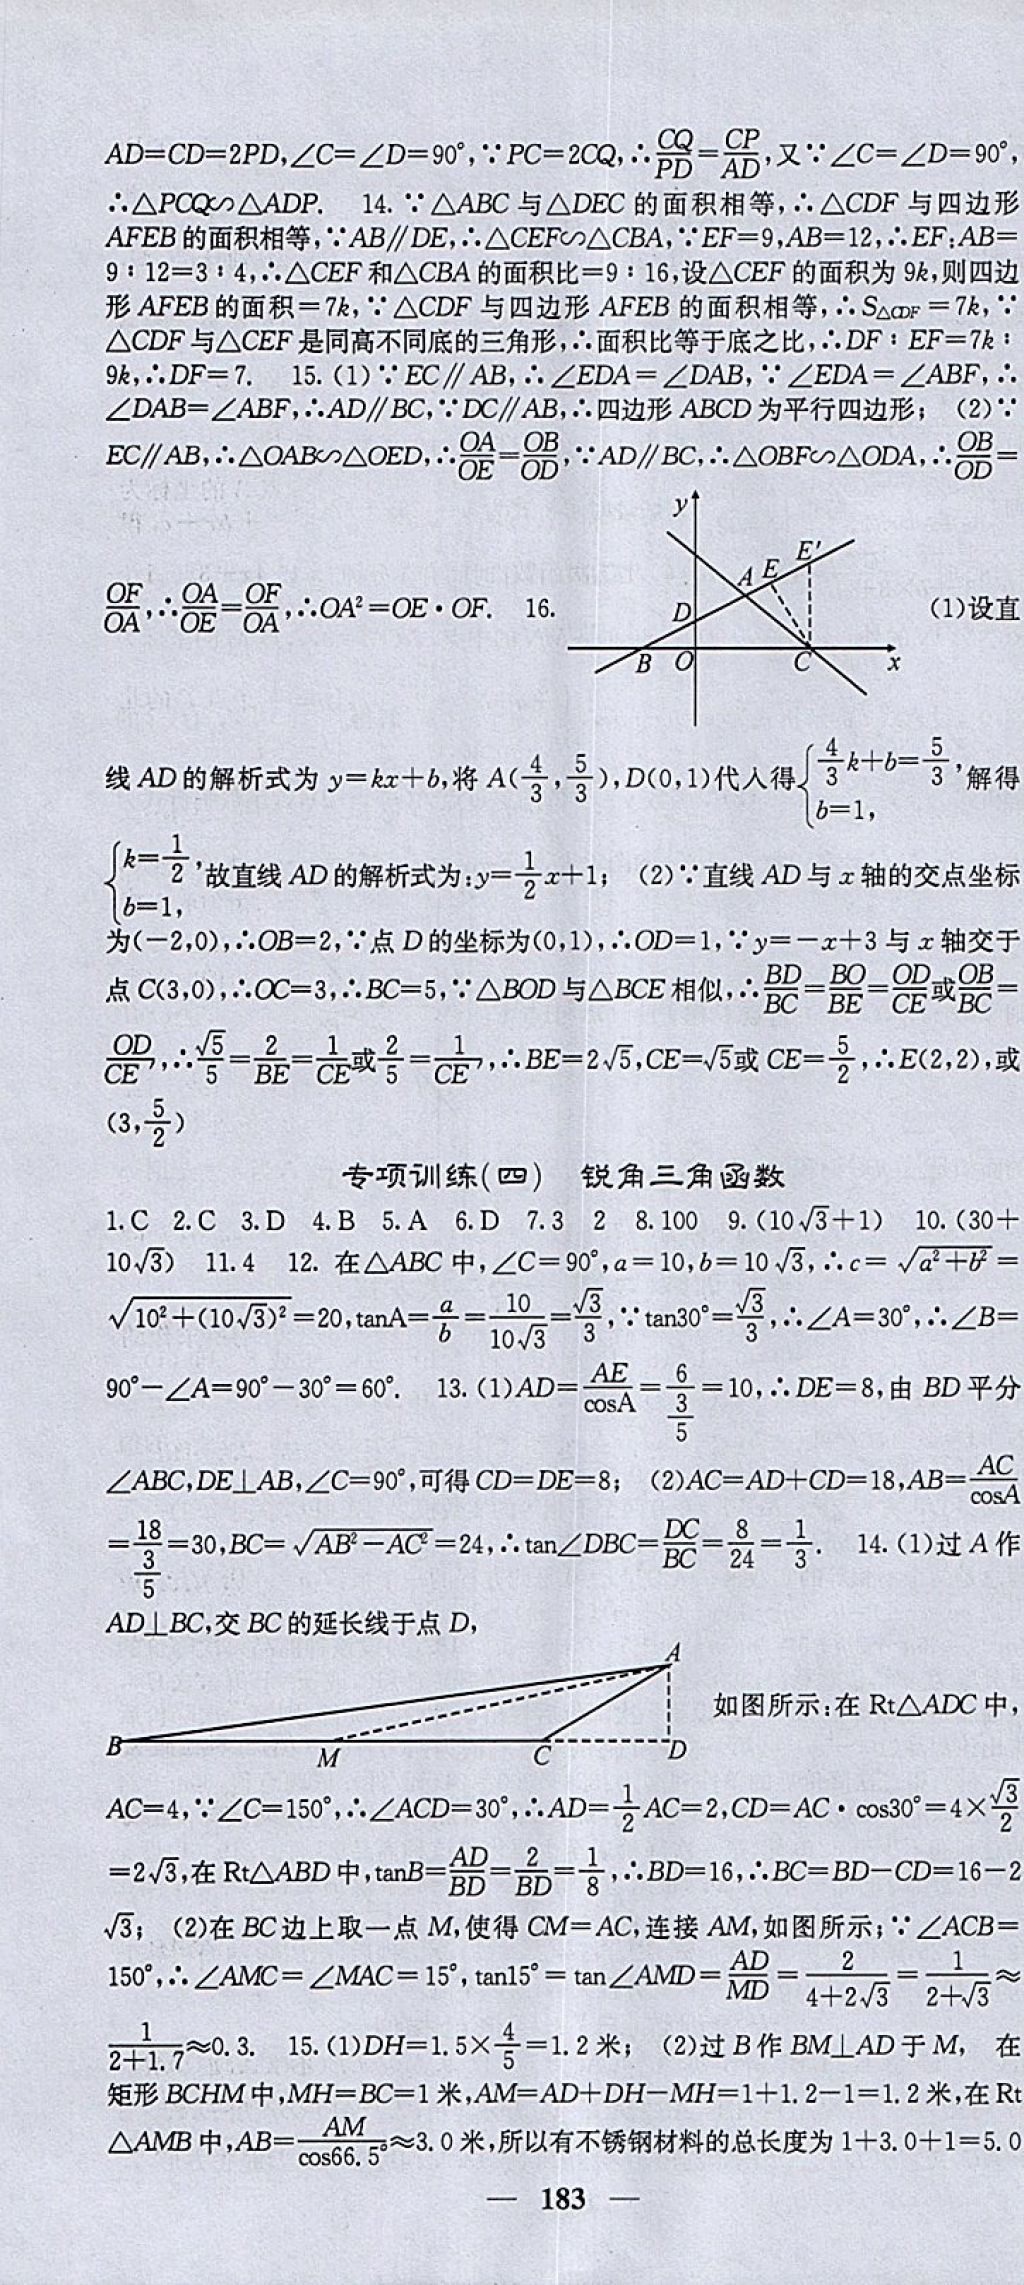 AD=CD=2PD,∠C=∠D=90°,∵PC=2CQ,∴CQ/PD=CP/AD,又∵∠C=∠D=90°,
∴△PCQ∽△ADP. 14.∵△ABC与△DEC的面积相等,∴△CDF与四边形
AFEB的面积相等,∵AB∥DE,∴△CEF∽△CBA,∵EF=9,AB=12,∴EF:AB=
9:12=3:4,∴△CEF和△CBA的面积比=9:16,设△CEF的面积为9k,则四边
形AFEB的面积=7k,∵△CDF与四边形AFEB的面积相等,∴S△CDF=7k,∵
△CDF与△CEF是同高不同底的三角形,∴面积比等于底之比,∴DF:EF=7k:
9k,∴DF=7. 15.(1)∵EC∥AB,∴∠EDA=∠DAB,∵∠EDA=∠ABF,∴
∠DAB=∠ABF,∴AD∥BC,∵DC∥AB,∴四边形ABCD为平行四边形; (2)∵
EC∥AB,∴△OAB∽△OED,∴OA/OE=OB/OD,∵AD∥BC,∴△OBF∽△ODA,∴OB/OD=
OF/OA,∴OA/OE=OF/OA,∴OA²=OE·OF. 16.
y
E′
A E
D
B O C x
(1)设直
线AD的解析式为y=kx+b,将A(4/3,5/3),D(0,1)代入得{4/3k+b=5/3, b=1, 解得
{k=1/2, b=1, 故直线AD的解析式为:y=1/2x+1; (2)∵直线AD与x轴的交点坐标
为(-2,0),∴OB=2,∵点D的坐标为(0,1),∴OD=1,∵y=-x+3与x轴交于
点C(3,0),∴OC=3,∴BC=5,∵△BOD与△BCE相似,∴BD/BC=BO/BE=OD/CE或OB/BC=
OD/CE′,∴√5/5=2/BE=1/CE或2/5=1/CE′,∴BE=2√5,CE=√5或CE=5/2,∴E(2,2),或
(3,5/2)
专项训练(四) 锐角三角函数
1.C 2.C 3.D 4.B 5.A 6.D 7.3 2 8.100 9.(10√3+1) 10.(30+
10√3) 11.4 12. 在△ABC中,∠C=90°,a=10,b=10√3,∴c=√(a²+b²)=
√(10²+(10√3)²)=20,tanA=a/b=10/10√3=√3/3,∵tan30°=√3/3,∴∠A=30°,∴∠B=
90°-∠A=90°-30°=60°. 13.(1)AD=AE/cosA=6/(3/5)=10,∴DE=8,由BD平分
∠ABC,DE⊥AB,∠C=90°,可得CD=DE=8; (2)AC=AD+CD=18,AB=AC/cosA
=18/(3/5)=30,BC=√(AB²-AC²)=24,∴tan∠DBC=DC/BC=8/24=1/3. 14.(1)过A作
AD⊥BC,交BC的延长线于点D,
A
B M C D
如图所示:在Rt△ADC中,
AC=4,∵∠C=150°,∴∠ACD=30°,∴AD=1/2AC=2,CD=AC·cos30°=4×√3/2
=2√3,在Rt△ABD中,tanB=AD/BD=2/BD=1/8,∴BD=16,∴BC=BD-CD=16-2
√3; (2)在BC边上取一点M,使得CM=AC,连接AM,如图所示;∵∠ACB=
150°,∴∠AMC=∠MAC=15°,tan15°=tan∠AMD=AD/MD=2/(4+2√3)=1/(2+√3)≈
1/(2+1.7)≈0.3. 15.(1)DH=1.5×4/5=1.2米; (2)过B作BM⊥AD于M, 在
矩形BCHM中,MH=BC=1米,AM=AD+DH-MH=1+1.2-1=1.2米,在Rt
△AMB中,AB=AM/cos66.5°≈3.0米,所以有不锈钢材料的总长度为1+3.0+1=5.0
— 183 —